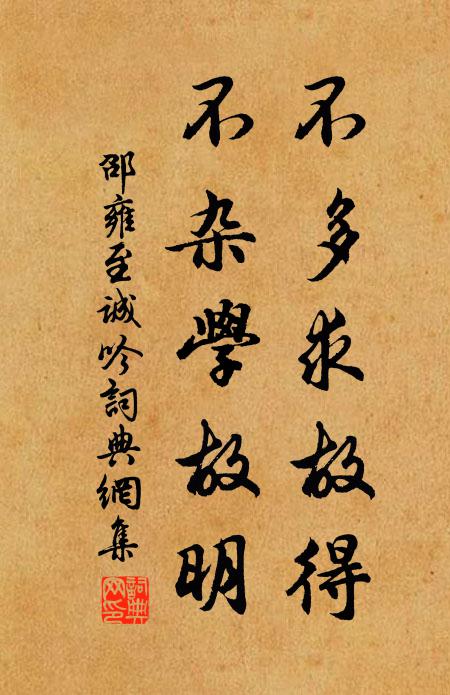 不多求故得
不杂學故明
邵雍至诚吟詞典網集
詞典网印